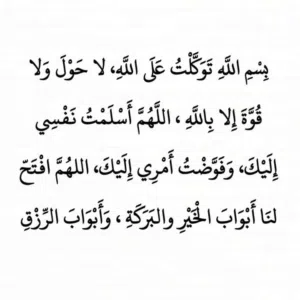 بِسْمِ اللَّهِ تَوَكَّلْتُ عَلَى اللَّهِ، لا حَوْلَ وَلا
قُوَّةَ إِلا بِاللَّهِ ، اللَّهُمَّ أَسْلَمْتُ نَفْسِي
إِلَيْكَ، وَفَوَّضْتُ أَمْرِي إِلَيْكَ، اللهُمَّ افْتَحْ
لنَا أَبْوَابَ الْخَيْرِ والبَرَكَةِ ، وَأَبْوَابَ الرِّزْقِ